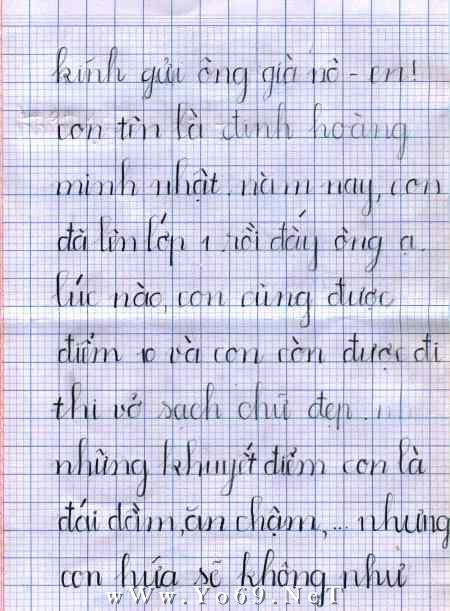 kính gửi ông già nô-en!
con tên là đinh hoàng
minh nhật. năm nay, con
đã lên lớp 1 rồi đấy ông ạ.
lúc nào, con cũng được
điểm 10 và con còn được đi
thi vở sạch chữ đẹp. nh
những khuyết điểm con là
đái dầm, ăn chậm,... nhưng
con hứa sẽ không như
wWw.Yo69.NeT